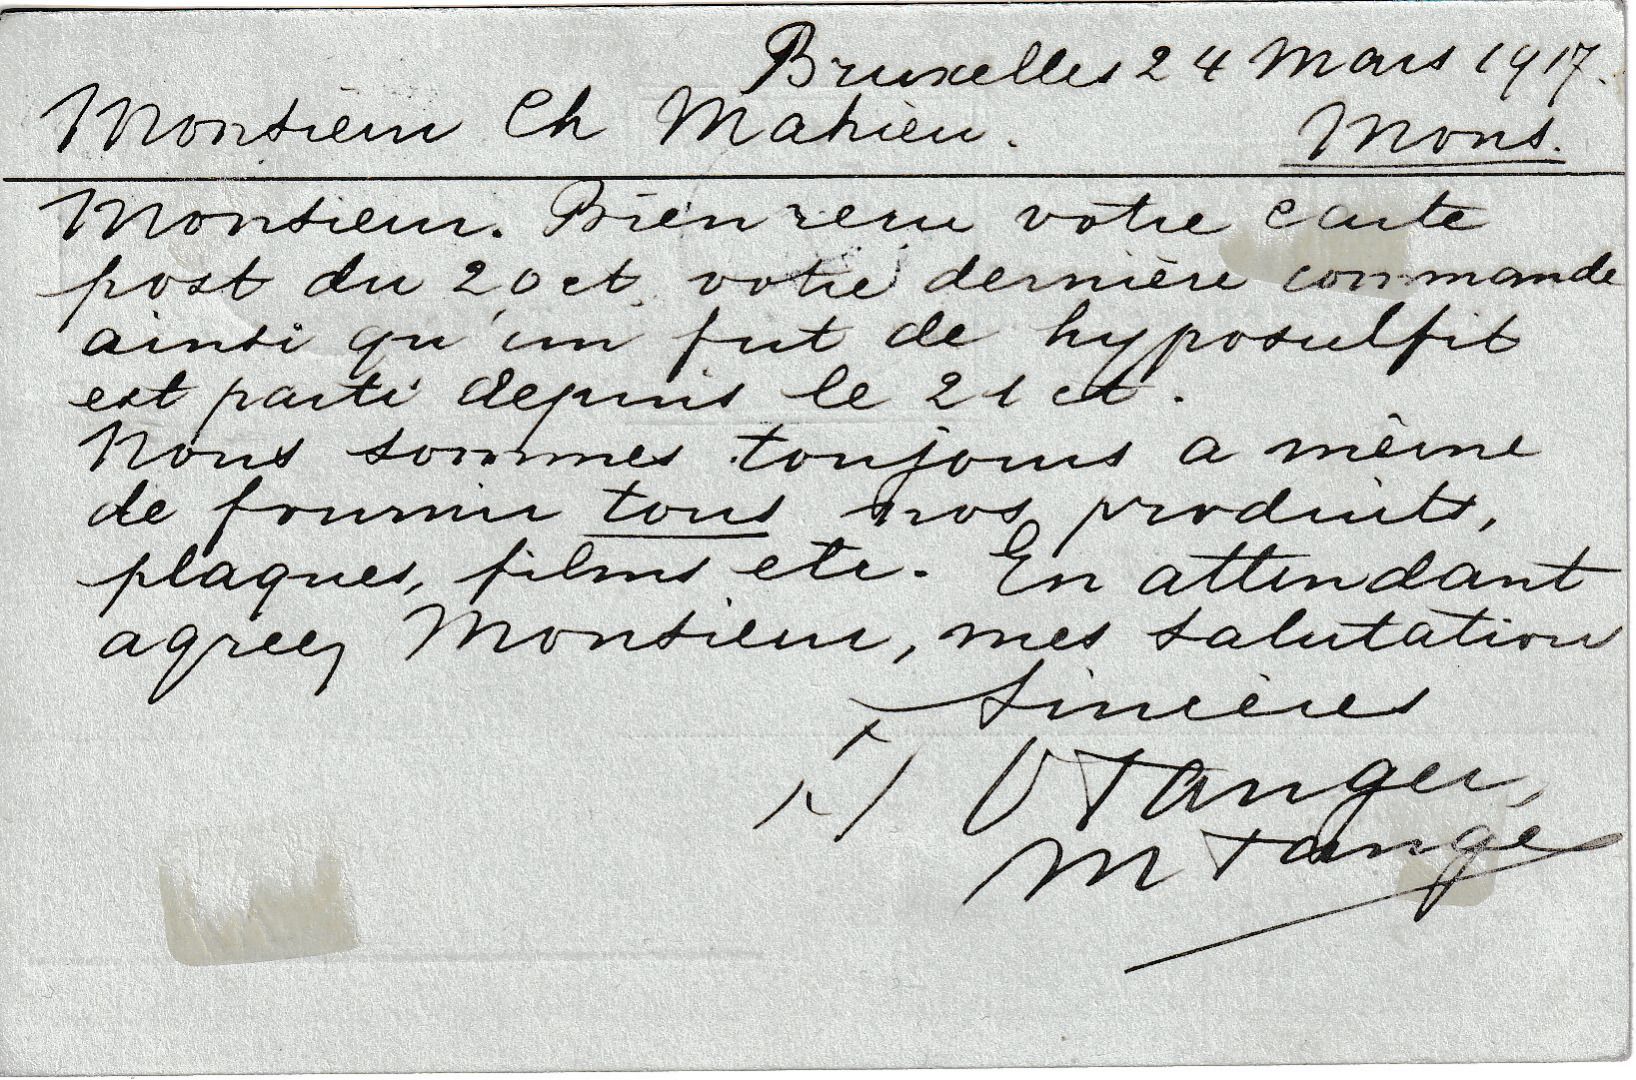 Bruxelles 24 Mars 1917.
Monsieur Ch Mahieu. Mons.
Monsieur. Bien recu votre carte
post du 20 ct votre dernière commande
ainsi qu'un fut de hyposulfit
est parti depuis le 21 ct.
Nous sommes toujours a même
de fournir tous nos produits,
plaques, films etc. En attendant
agreez Monsieur, mes salutation
sincères
V Tanger,
M Tange